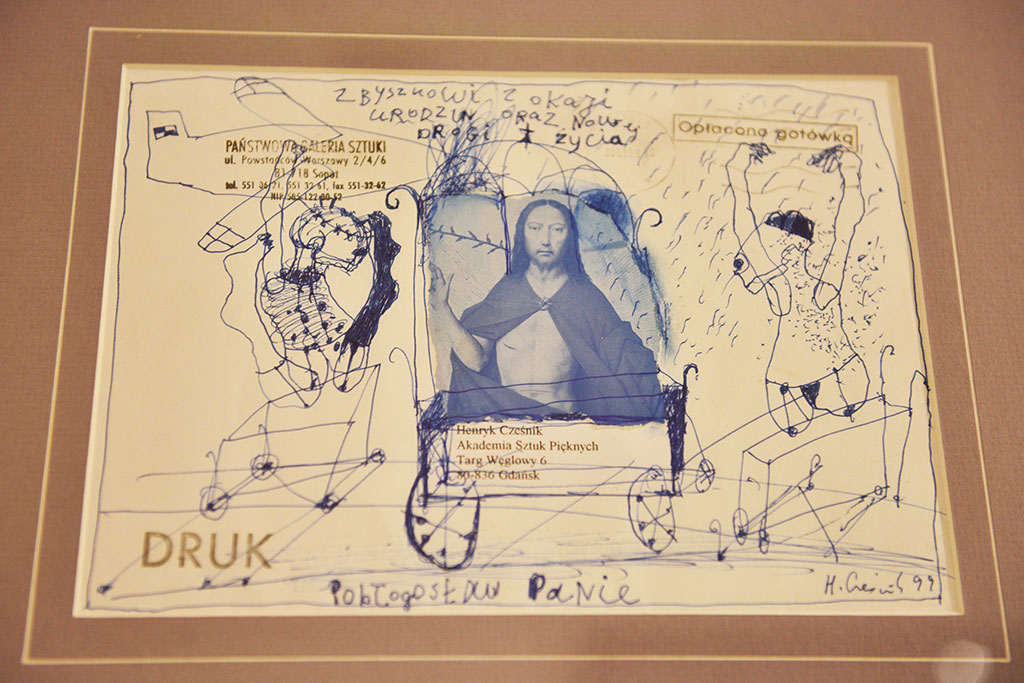 ZBYSZKOWI Z OKAZJI
URODZIN ORAZ NOWEJ
DROGI życia
Opłacono gotówką
PAŃSTWOWA GALERIA SZTUKI
ul. Powstańców Warszawy 2/4/6
81-718 Sopot
tel. 551 06 21, 551 32 61, fax 551-32-62
NIP 585-122-80-52
Henryk Cześnik
Akademia Sztuk Pięknych
Targ Węglowy 6
80-836 Gdańsk
DRUK
PobłogosłAW PaNie
H. Cześnik 99